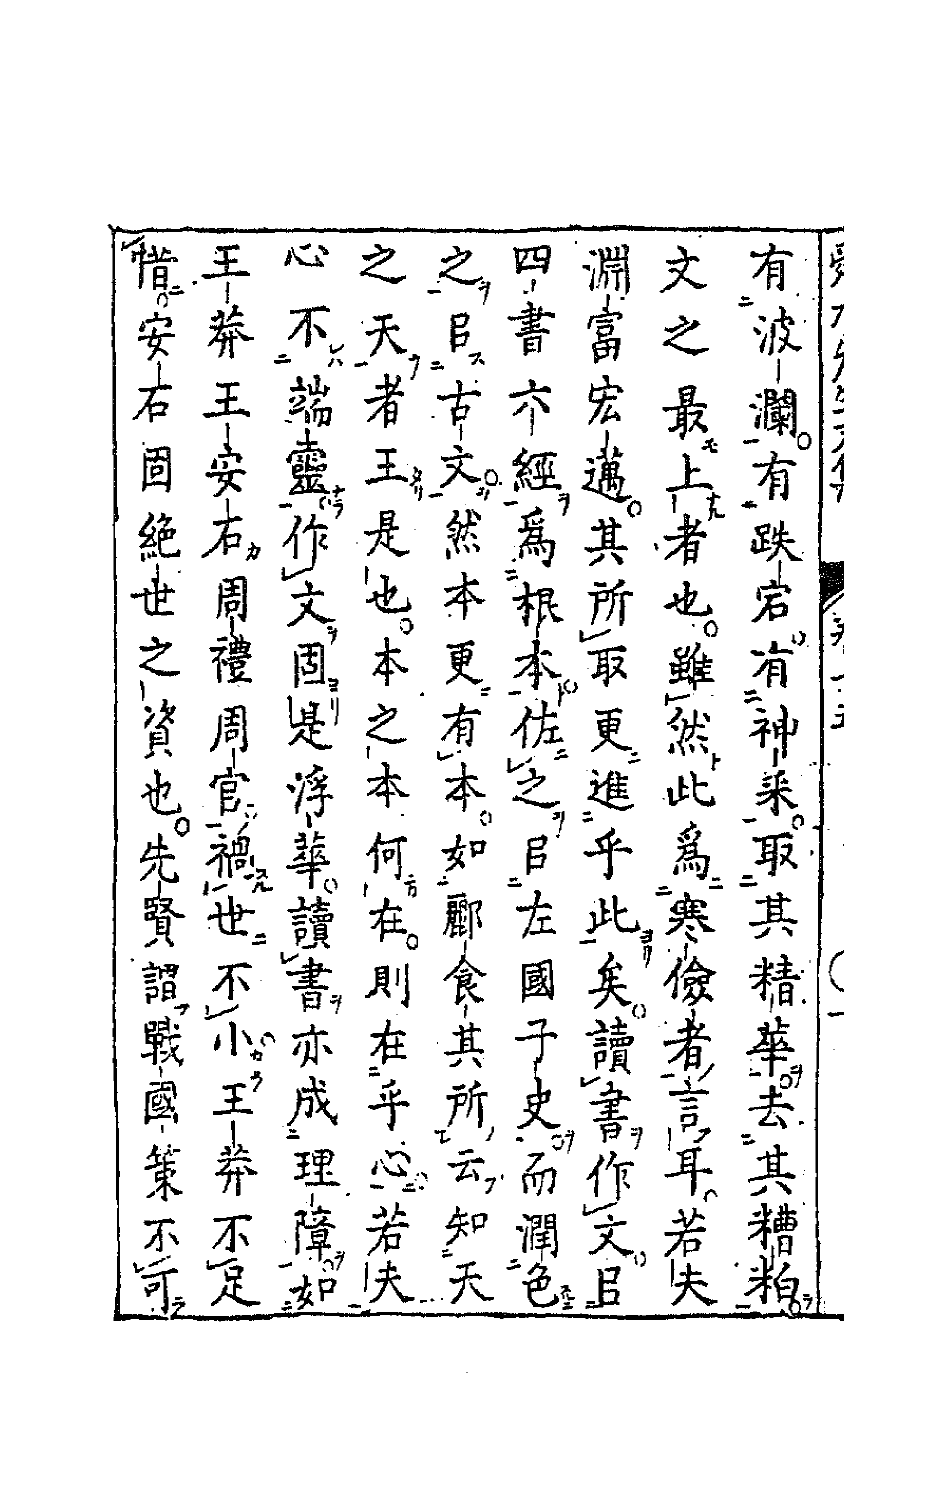 有波瀾有跌宕有神采取其精華去其糟粕
文之最上者也雖然此爲寒儉者言耳若夫
淵富宏邁其所取更進乎此矣讀書作文㠯
四書六經爲根本佐之㠯左國子史而潤色
之㠯古文然本更有本如酈食其所云知天
之天者王是也本之本何在則在乎心若夫
心不端靈作文固是浮華讀書亦成理障如
王莽王安石周禮周官禍世不小王莽不足
惜安石固絶世之資也先賢謂戰國策不可